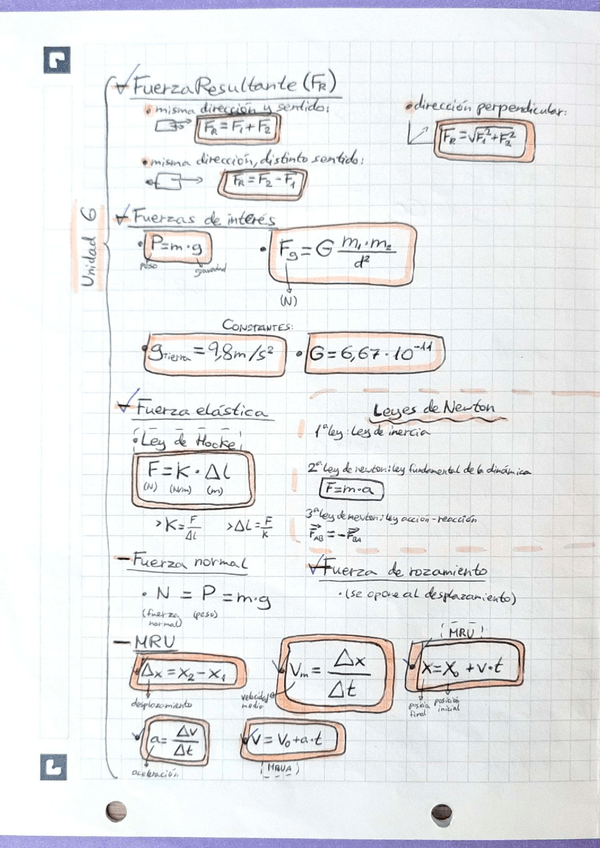 Unidad 6
Fuerza Resultante (FR)
• misma dirección y sentido:
FR = F1 + F2
• dirección perpendicular:
FR = √F1² + F2²
• misma dirección, distinto sentido:
FR = F2 - F1
Fuerzas de interés
• P = m · g
peso gravedad
• Fg = G m1 · m2 / d²
(N)
CONSTANTES:
• g tierra = 9,8 m/s²
• G = 6,67 · 10⁻¹¹
Fuerza elástica
• Ley de Hocke
F = K · Δl
(N) (N/m) (m)
> K = F/Δl > Δl = F/K
Leyes de Newton
1ª ley: Ley de inercia
2ª Ley de newton: ley fundamental de la dinámica
F = m · a
3ª ley de newton: ley acción-reacción
F⃗AB = -F⃗BA
— Fuerza normal
• N = P = m · g
(fuerza normal) (peso)
Fuerza de rozamiento
• (se opone al desplazamiento)
— MRU
Δx = x2 - x1
desplazamiento
Vm = Δx / Δt
velocidad media
MRU
x = x0 + v · t
posición final
posición inicial
a = Δv / Δt
aceleración
V = V0 + a · t
MRUA